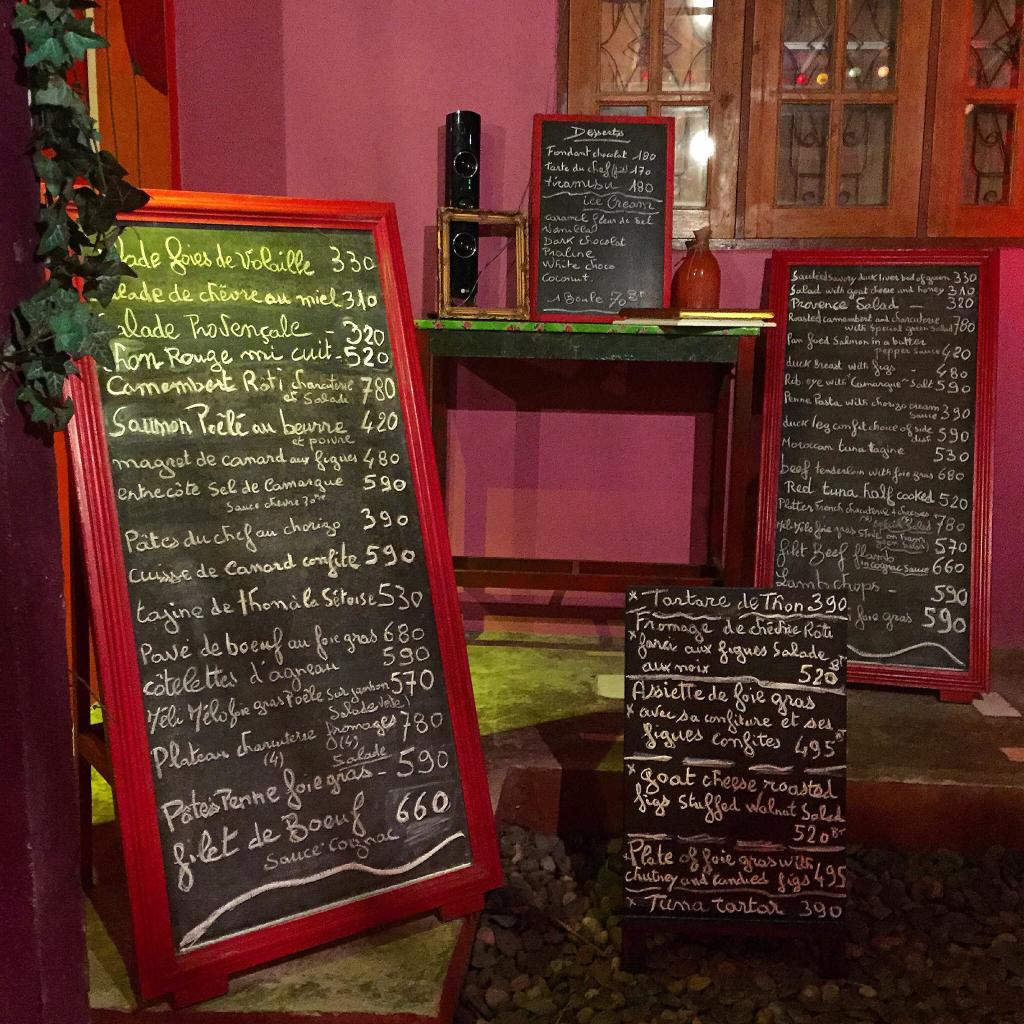 lade foies de Volaille 330
alade de chèvre au miel 310
alade Provençale - 320
Thon Rouge mi cuit - 520
Camembert Rôti charcuterie et Salade 780
Saumon Poêlé au beurre et poivre 420
magret de canard aux figues 480
entrecôte Sel de Camargue 590
Sauce chèvre 70
Pâtes du chef au chorizo 390
cuisse de Canard confite 590
tagine de thon à la Sétoise 530
Pavé de boeuf au foie gras 680
côtelettes d'agneau 590
Méli Mélo foie gras Poêlé Sur jambon 570
Salade verte
Plateau charcuterie (4) fromages (4) Salade 780
Pâtes Penne foie gras - 590
filet de Boeuf 660
Sauce Cognac
Desserts
Fondant chocolat 180
Tarte du chef 170
tiramisu 180
ice Cream
caramel fleur de Sel
Vanilla
Dark chocolat
Praline
White choco
Coconut.
1 Boule 70 Bt
Sauteed Savory duck liver bed of green 330
Salad with goat cheese and honey 310
Provence Salad - 320
Roasted camembert and charcuterie
with Special green Salad 780
Pan fried Salmon in a butter
pepper Sauce 420
duck Breast with figs - 480
Rib eye with "Camargue" Salt 590
Penne Pasta with chorizo cream
Sauce 390
duck leg confit choice of side
dish 590
Moroccan tuna tagine 530
beef tenderloin with foie gras 680
Red tuna half cooked 520
Platter French charcuterie & cheeses
780
Méli Mélo foie gras on ham
green Salad 570
filet Beef flambé
in cognac sauce 660
Lamb chops - 590
foie gras 590
* Tartare de Thon 390
* Fromage de chèvre Rôti
farci aux figues Salade
aux noix 520 Bt
* Assiette de foie gras
avec sa confiture et ses
figues confites 495 Bt
* goat cheese roasted
figs Stuffed walnut Salad
520 Bt
* Plate of foie gras with
chutney and candied figs 495
* Tuna tartar 390